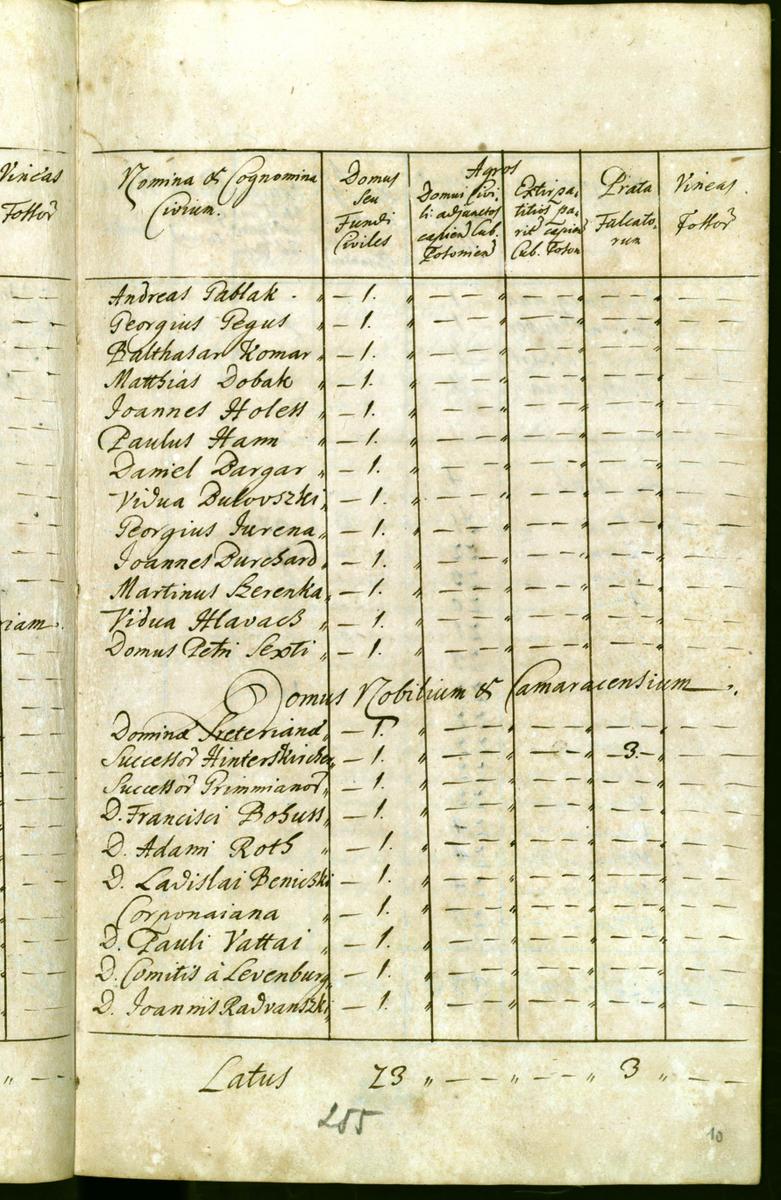 Vineas
Fossor
riam.
„ —
Nomina & Cognomina Civium.
Domus seu Fundi Civiles
Agros
Domui Civili adjunctos capien Cub. Posonien
Extirpatitios pariter capien Cub. Poson
Prata Falcatorum
Vineas Fossor
Andreas Pablak „ — 1. „ — — „ — — „ — — „ — —
Georgius Pegus „ — 1. „ — — „ — — „ — — „ — —
Balthasar Komar „ — 1. „ — — „ — — „ — — „ — —
Matthias Dobak „ — 1. „ — — „ — — „ — — „ — —
Joannes Holess „ — 1. „ — — „ — — „ — — „ — —
Paulus Hann „ — 1. „ — — „ — — „ — — „ — —
Daniel Bargar „ — 1. „ — — „ — — „ — — „ — —
Vidua Bulovszki „ — 1. „ — — „ — — „ — — „ — —
Georgius Jurena „ — 1. „ — — „ — — „ — — „ — —
Joannes Burchard „ — 1. „ — — „ — — „ — — „ — —
Martinus Szerenka „ — 1. „ — — „ — — „ — — „ — —
Vidua Hlavacs „ — 1. „ — — „ — — „ — — „ — —
Domus Petri Sexti „ — 1. „ — — „ — — „ — — „ — —
Domus Nobilium & Camaracensium
Dominæ — 1. „ — — „ — — „ — — „ — —
Successor — 1. „ — — „ — — „ — 3. — „ — —
Successor Primmianor „ — 1. „ — — „ — — „ — — „ — —
D. Francisci Bohuss „ — 1. „ — — „ — — „ — — „ — —
D. Adami Roth „ — 1. „ — — „ — — „ — — „ — —
D. Ladislai Beniczki — 1. „ — — „ — — „ — — „ — —
Corponaiana „ — 1. „ — — „ — — „ — — „ — —
D. Pauli Vattai „ — 1. „ — — „ — — „ — — „ — —
D. Comitis à Levenburg „ — 1. „ — — „ — — „ — — „ — —
D. Joannis Radvanszki „ — 1. „ — — „ — — „ — — „ — —
Latus 23 „ — — „ — — „ 3 „ — —
255
10